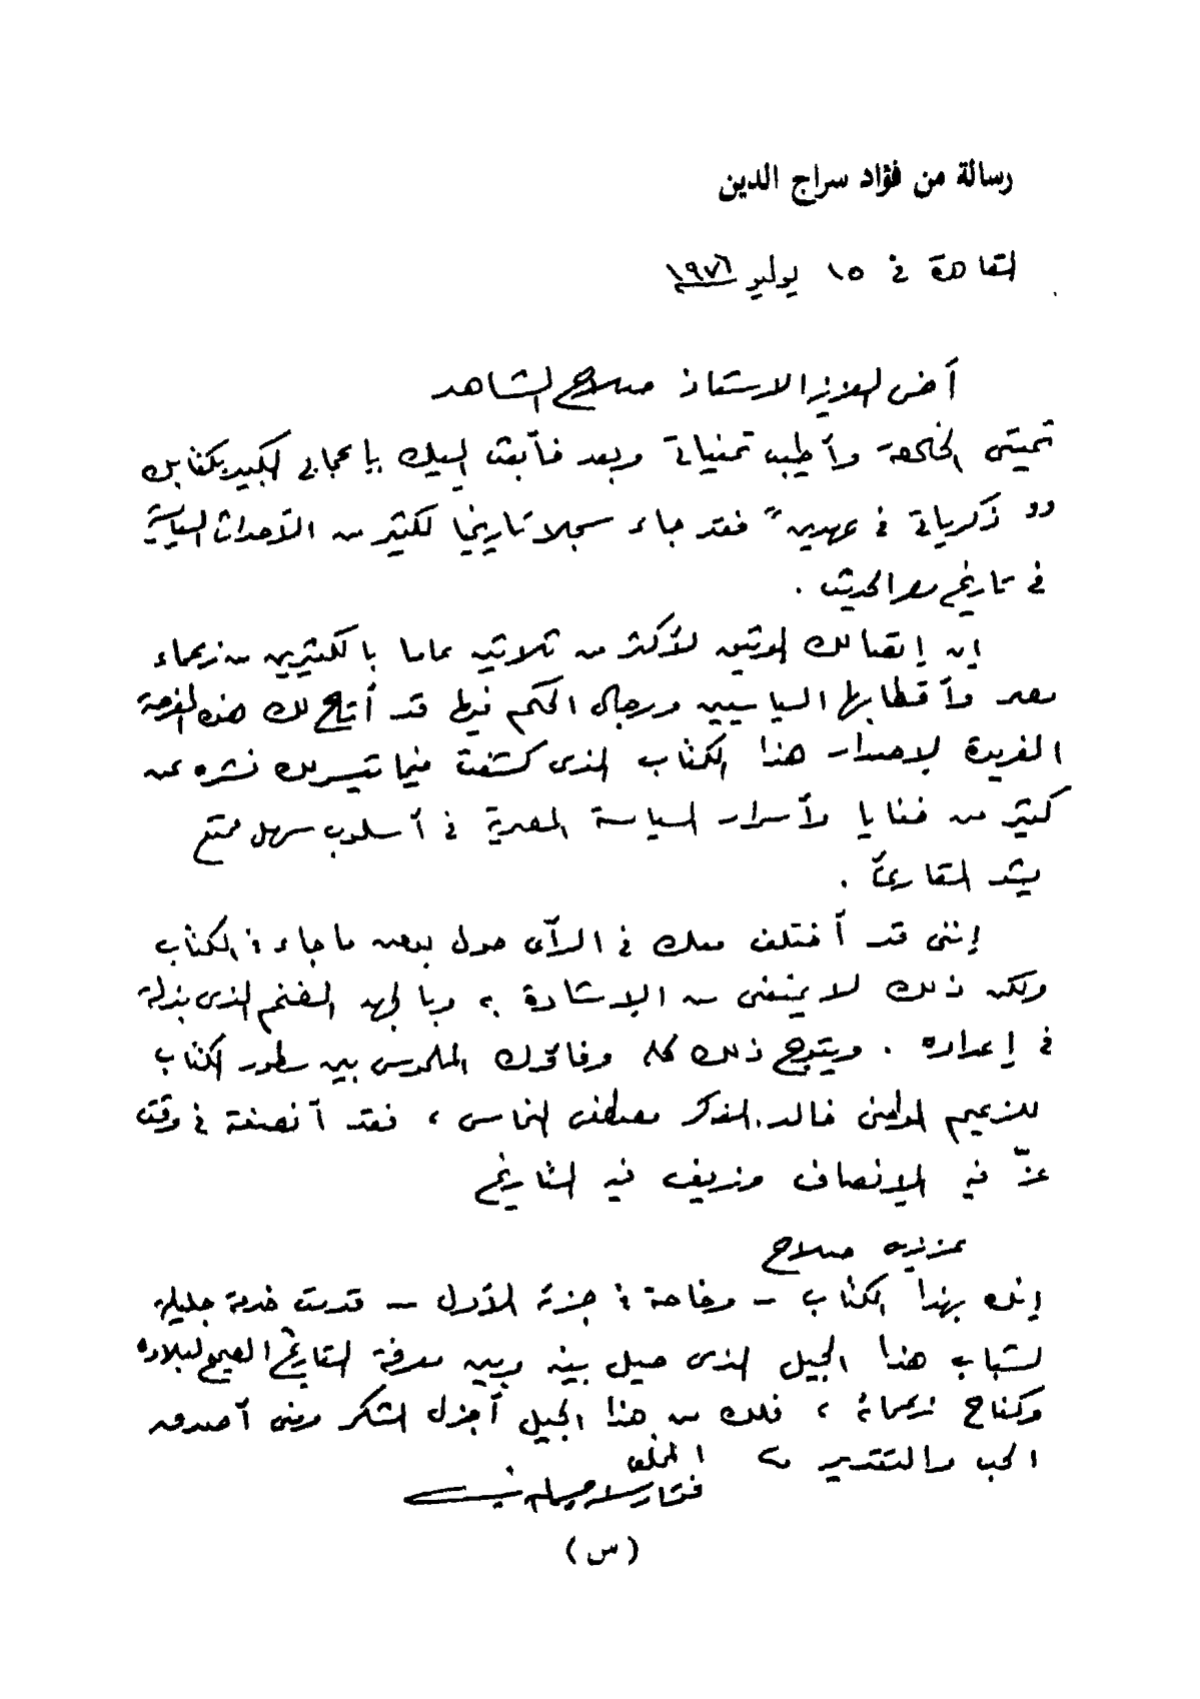 رسالة من فؤاد سراج الدين
القاهرة في ١٥ يوليو ١٩٧٦
أخى العزيز الاستاذ صلاح الشاهد
تحيتى الخالصة وأطيب تمنياتى وبعد فأبعث إليك بإعجابى الكبير بكتابك
"ذكرياتى فى عهدين" فقد جاء سجلا تاريخيا لكثير من الأحداث السياسية
فى تاريخ مصر الحديث .
إن إتصالك الوثيق لأكثر من ثلاثين عاما بالكثيرين من زعماء
مصر وأقطابها السياسيين ورجال الحكم فيها قد أتاح لك هذه الفرصة
الفريدة لإصدار هذا الكتاب الذى كشفت فيما تيسر لك نشره عن
كثير من خفايا وأسرار السياسة المصرية فى أسلوب سهل ممتع
يشد القارئ .
إننى قد أختلف معك فى الرأى حول بعض ما جاء فى الكتاب
ولكن ذلك لا يمنعنى من الإشادة به وبالجهد الضخم الذى بذلته
فى إعداده . ويتوج ذلك كله وفاؤك الملموس بين سطور الكتاب
للزعيم الوطنى خالد الذكر مصطفى النحاس ، فقد أنصفته فى وقت
عزّ فيه الإنصاف وزيف فيه التاريخ
عزيزى صلاح
إنك بهذا الكتاب – وخاصة فى جزئه الأول – قدمت خدمة جليلة
لشباب هذا الجيل الذى حيل بينه وبين معرفة التاريخ الصحيح لبلاده
وكفاح زعمائه ، فلك من هذا الجيل أجزل الشكر ومنى أصدق
الحب والتقدير المخلص
فؤاد سراج الدين
( س )